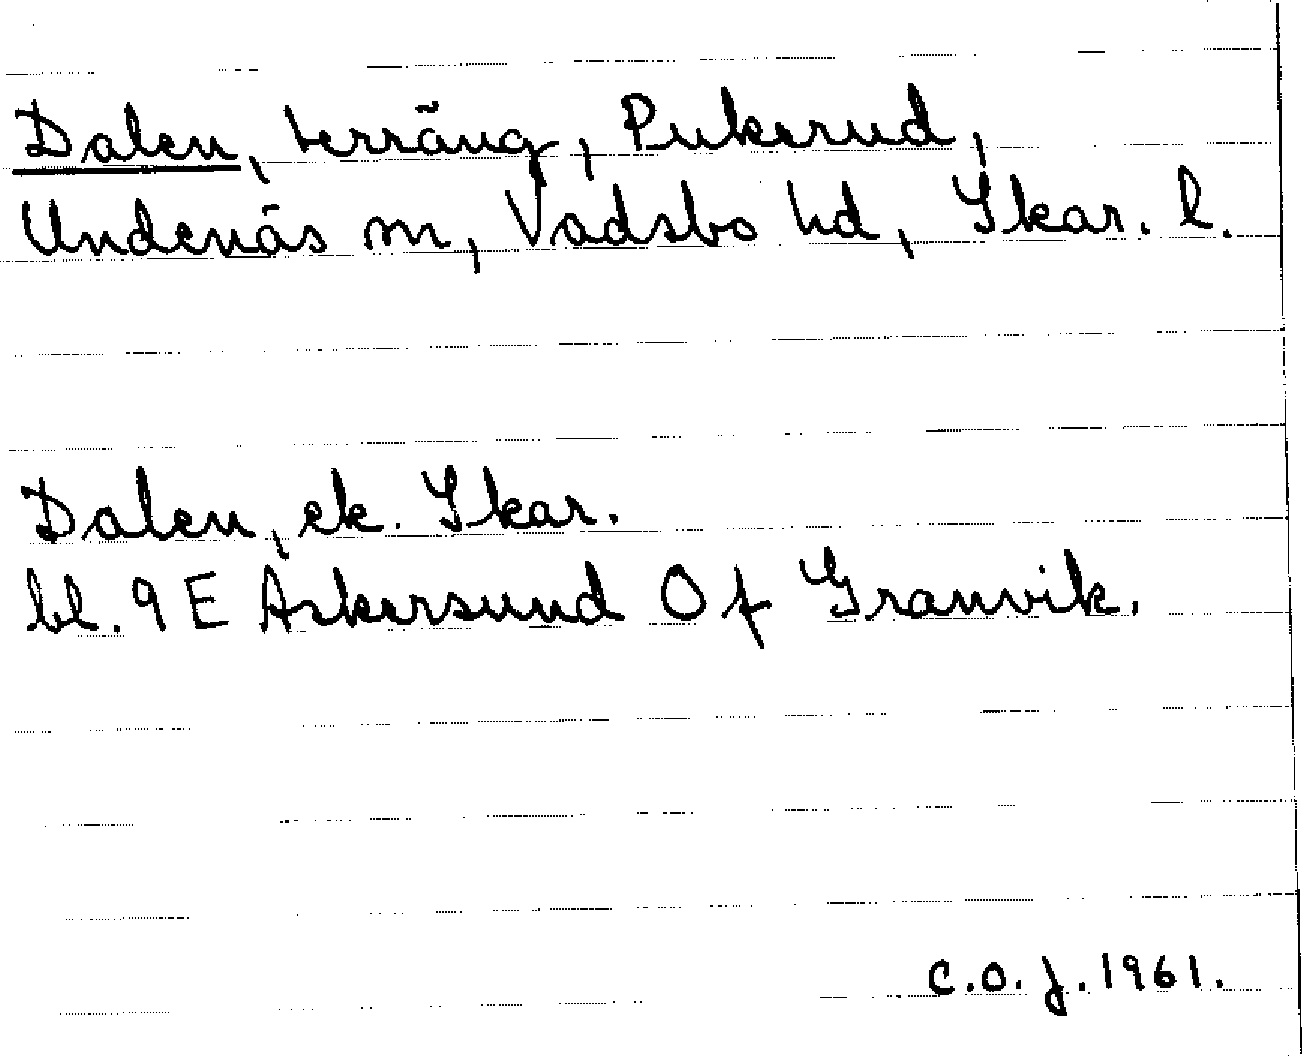 Dalen, terräng, Pukerud,
Undenäs sn, Vadsbo hd, Skar. l.
Dalen, ek. Skar.
bl. 9E Askersund 0f Granvik.
C.O.J. 1961.